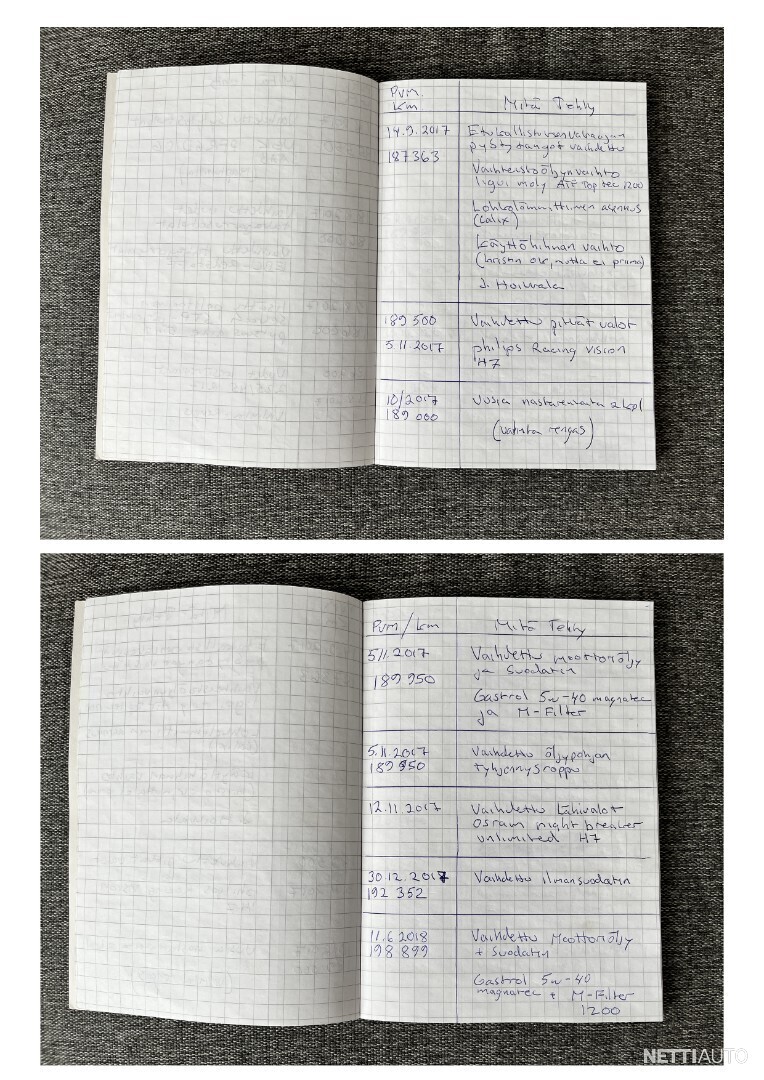 Pvm.
km
Mitä Tehty
14.9.2017
187363
Etukallistuksenvakaajan
pystytangot vaihdettu
Vaihteistoöljynvaihto
liqui moly ATF Top tec 1200
Lohkolämmittimen asennus
(Calix)
Käyttöhihnan vaihto
(hristin ok, mutta ei priima)
J. Hoikkala
189 500
5.11.2017
Vaihdettu pitkät valot
philips Racing Vision
H7
10/2017
189 000
Uusia nastarenkaita 2 kpl
(vanista rengas)
Pvm/km
Mitä Tehty
5/11.2017
189 950
Vaihdettu moottoriöljy
ja Suodatin
Castrol 5w-40 magnatec
ja M-Filter
5.11.2017
189 950
Vaihdettu öljypohjan
tyhjennysroppu
12.11.2017
Vaihdettu Lähivalot
Osram night breaker
unlimited H7
30.12.2017
192 352
Vaihdettu ilmansuodatin
11.6 2018
198 899
Vaihdettu Moottoriöljy
+ Suodatin
Castrol 5w-40
magnatec + M-Filter
1200
NETTIAUTO